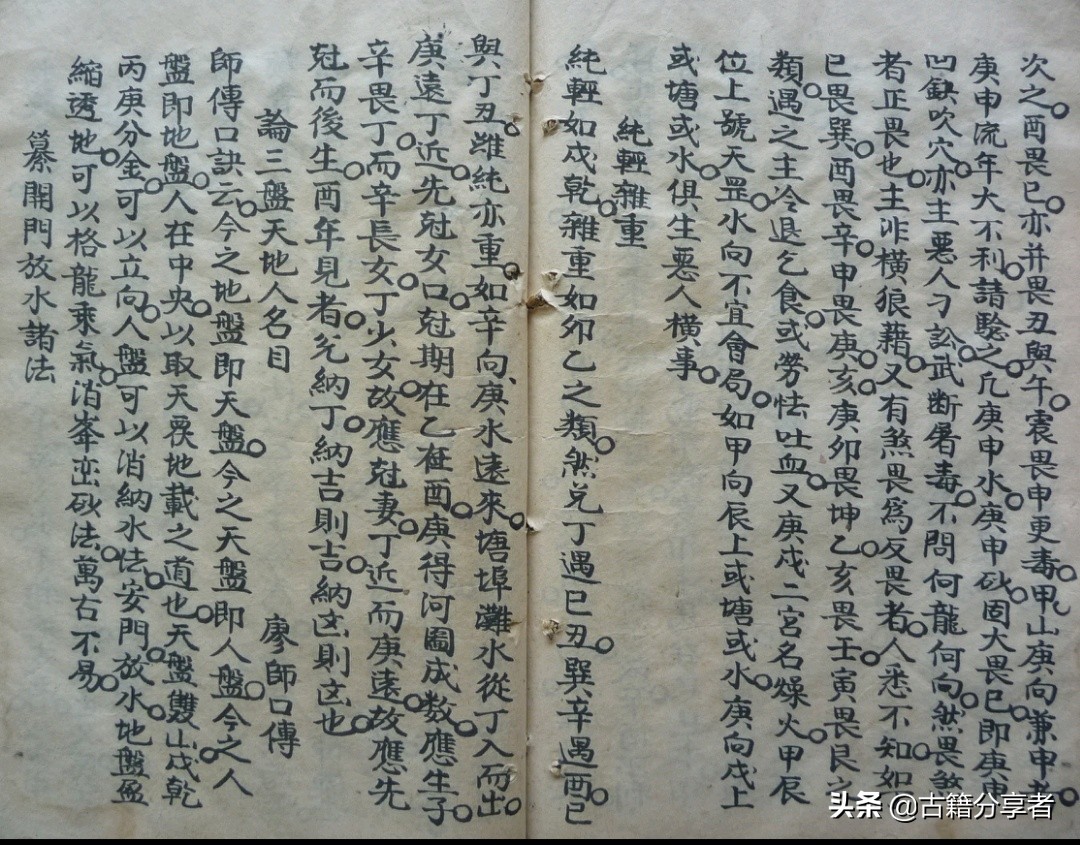 次之酉畏巳亦并畏丑與午震畏申更毒甲山庚向兼申者
庚申流年大不利請驗之凡庚申水庚申砂固大畏巳即庚申
凹缺吹穴亦主惡人刁訟武断屠毒不問何龍何向然畏煞
者正畏也主非橫狼藉又有煞畏為反畏者人悉不知如
巳畏巽酉畏辛申畏庚亥庚卯畏坤乙亥畏壬寅畏艮之
類遇之主冷退乞食或勞怯吐血又庚戌二宮名燥火甲辰
位上號天罡水向不宜會局如甲向辰上或塘或水庚向戌上
或塘或水俱生惡人橫事
純輕雜重
純輕如戌乾雜重如卯乙之類然兌丁遇巳丑巽辛遇酉巳
與丁丑雖純亦重如辛向庚水遠來塘埠灘水從丁入而出
庚遠丁近先尅女口尅期在乙在酉庚得河圖成数應生子
辛畏丁而辛長女丁少女故應尅妻丁近而庚遠故應先
尅而後生酉年見者兌納丁納吉則吉納凶則凶也
論三盤天地人名目 廖師口傳
師傳口訣云今之地盤即天盤今之天盤即人盤今之人
盤即地盤人在中央以取天覆地載之道也天盤雙山戌乾
丙庚分金可以立向人盤可以消納水法安門放水地盤盈
縮透地可以格龍乘氣消峯巒砂法萬古不易
纂開門放水諸法
头条 @古籍分享者